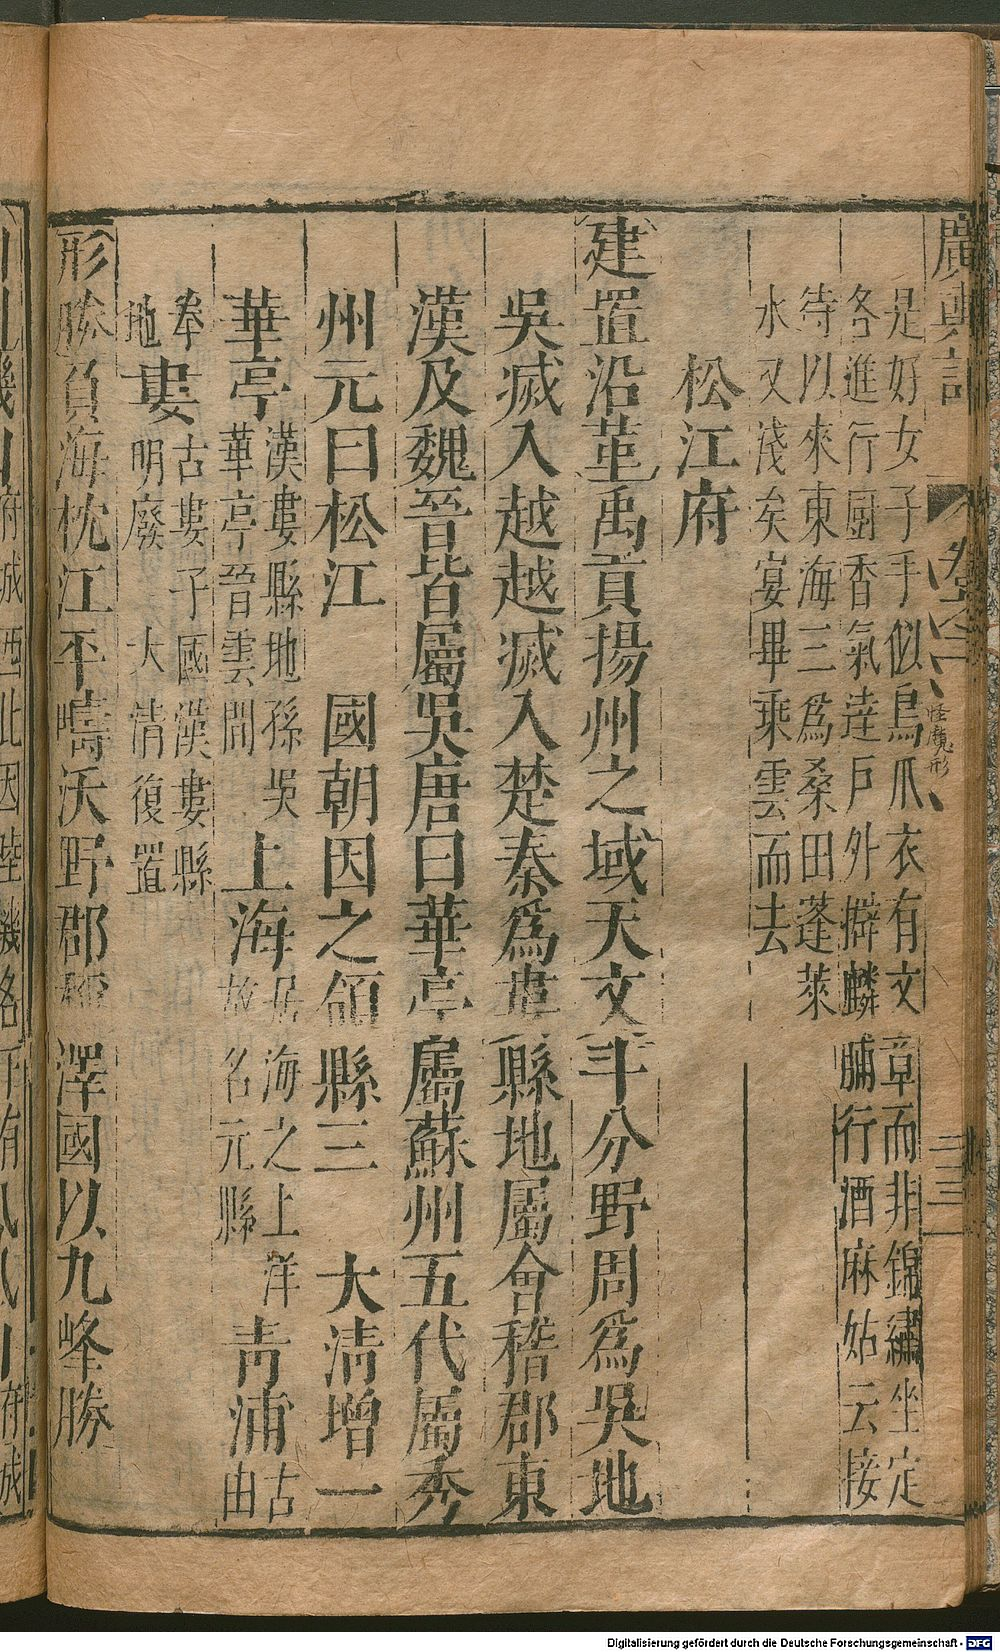 廣輿記
卷之二
怪魔形
三三
是好女子手似鳥爪衣有文章而非錦繡坐定
各進行厨香氣達戶外擗麟脯行酒麻姑云接
待以來東海三爲桑田蓬萊
水又淺矣宴畢乘雲而去
松江府
建置沿革禹貢揚州之域天文斗分野周爲吳地
吳滅入越越滅入楚秦爲婁縣地屬會稽郡東
漢及魏晉皆屬吳唐曰華亭屬蘇州五代屬秀
州元曰松江 國朝因之領縣三 大清增一
華亭漢婁縣地孫吳華亭晉雲間上海居海之上洋故名元縣青浦古由
拳地婁古婁子國漢婁縣明廢 大清復置
形勝負海枕江平疇沃野郡稱澤國以九峰勝
府城西北因陸機名
府城
Digitalisierung gefördert durch die Deutsche Forschungsgemeinschaft - DFG